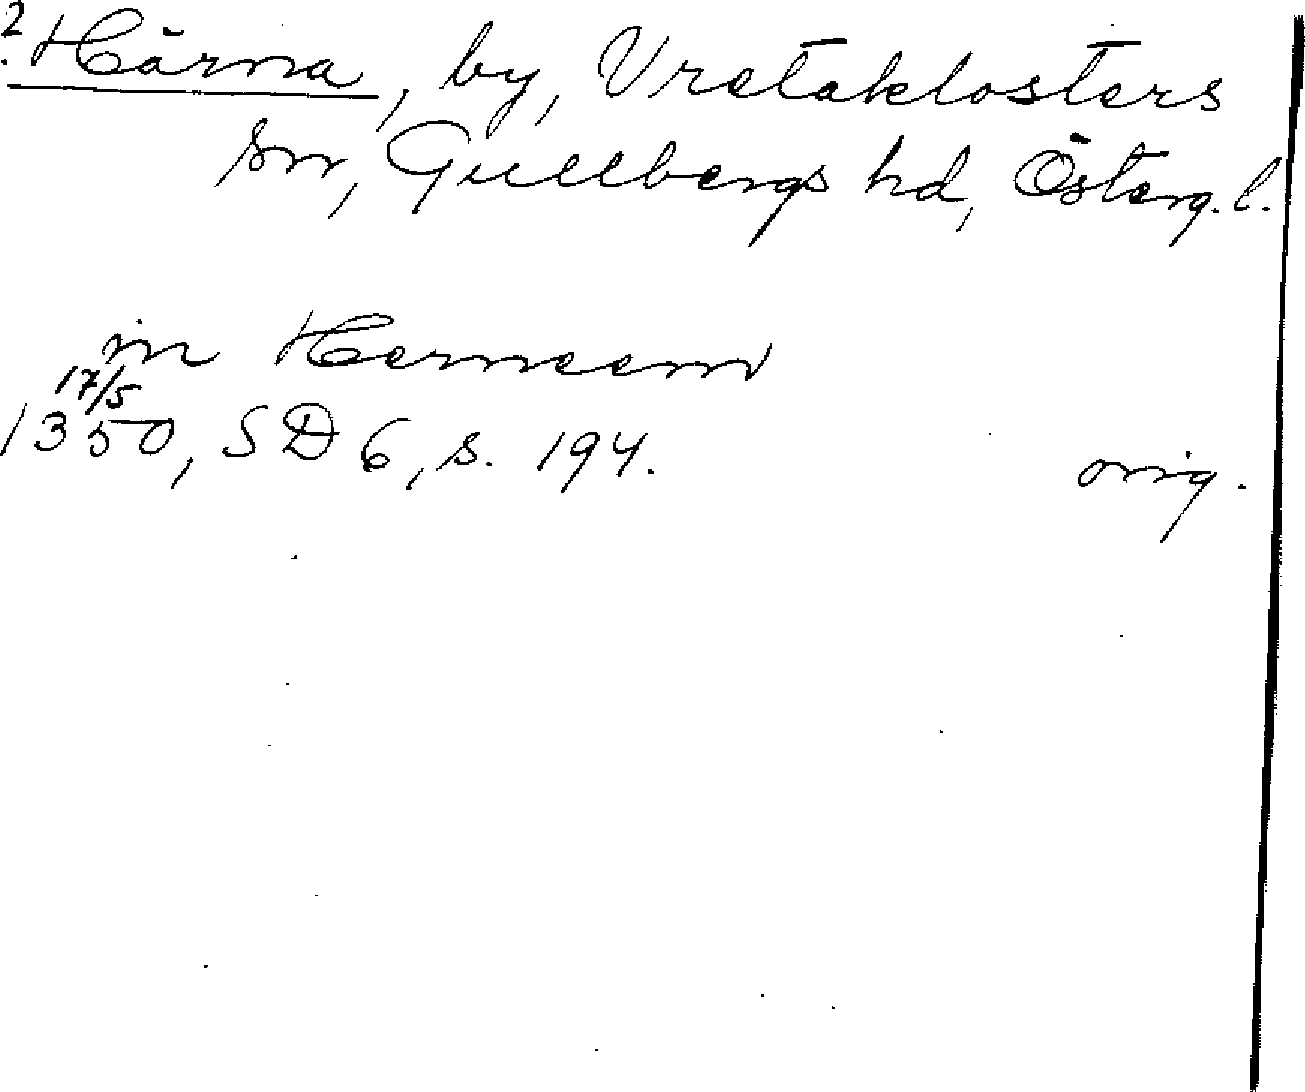 ? Härna, by, Vretaklosters
sn, Gullbergs hd, Österg. l.
in Herneem
17/5
1350, SD 6, s. 194.
orig.